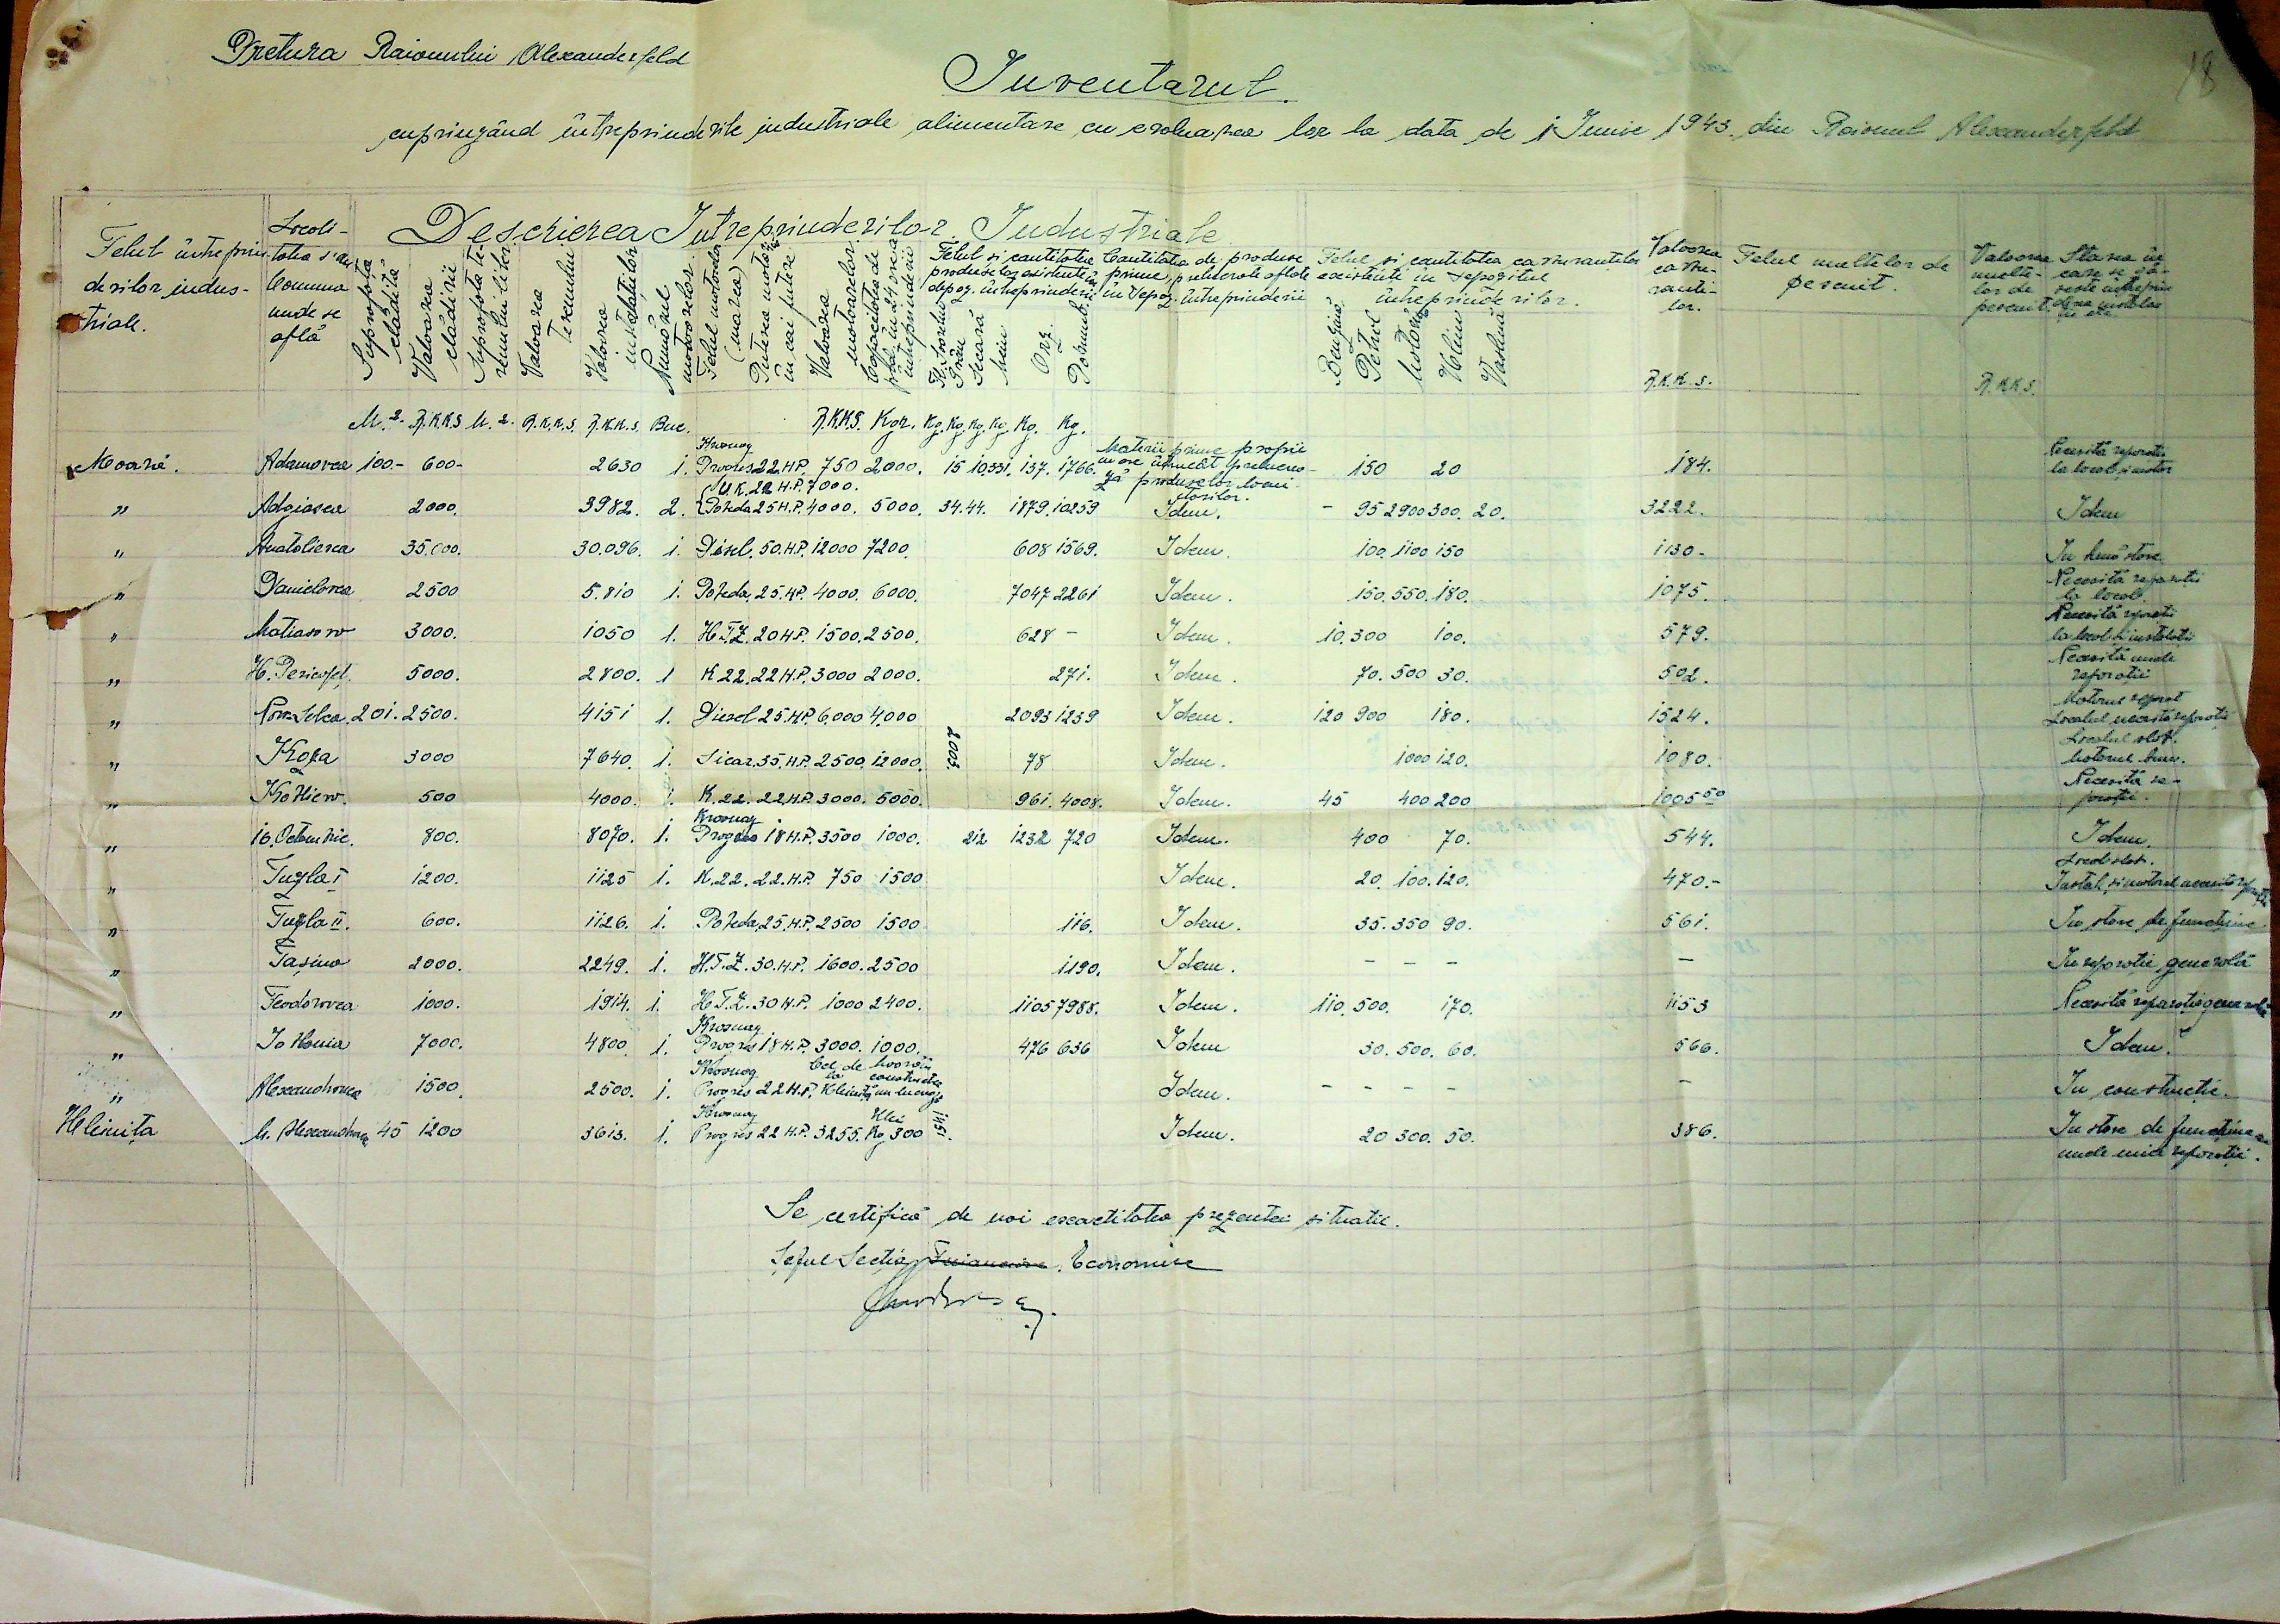 Pretura Raionului Alexanderfeld
18
Inventarul
cuprinzând întreprinderile industriale alimentare cu evaluarea lor la data de 1 Iunie 1943 din Raionul Alexanderfeld
Descrierea Intreprinderilor Industriale
Felul întreprinderilor industriale.
Localitatea sau Comuna unde se află
Suprafața clădită
Valoarea clădirii
Suprafața terenului liber
Valoarea Terenului
Valoarea instalațiilor
Numărul motoarelor
Felul motorului (marca)
Puterea motorului în cai putere
Valoarea motoarelor
Capacitatea de în 24 ore a întreprinderii
Felul și cantitatea produselor existente în depoz. întreprinderii
Grâu
Secară
Orz
Porumb
Cantitatea de produse prime, aflate în depoz. întreprinderii
Felul și cantitatea carburanților existenți în depozitul întreprinderilor.
Benzină
Petrol
Motorină
Ulei
Vaselină
Valoarea carburanților.
Felul uneltelor de pescuit.
Valoarea uneltelor de pescuit
Starea în care se găsește
R.K.K.S.
R.K.K.S.
M.2. R.K.K.S M.2. R.K.K.S. R.K.K.S. Buc. R.K.K.S. Kgr. Kg. Kg. Kg. Kg. Kg. Kg.
Moară. Adamovca 100.- 600- 2630 1. Krasnay Progres 22 H.P. 750 2000. 15 10331. 137. 1766. Materii prime proprii nu are întrucât produselor locuitorilor. - 150 20 184. Necesită reparații la local și motor
" Adgiasca 2000. 3982. 2. U.K. 22 H.P. 7000. Pobeda 25 H.P. 4000. 5000. 34.44. 1879. 10259 Idem. - 95 2900 300. 20. 3222. Idem
" Anatolievca 35.000. 30.096. 1. Disel. 50. H.P. 12000 7200. 608 1569. Idem. 100. 1100 150 1130- In bună stare
" Danielovca 2500 5.810 1. Pobeda. 25. H.P. 4000. 6000. 7047 2261 Idem. 150. 550. 180. 1075. Necesită reparații la local.
" Matiasovo 3000. 1050 1. H.T.Z. 20 H.P. 1500. 2500. 628 - Idem. 10. 300 100. 579. Necesită reparații la local și instalații
" 5000. 2800. 1 K 22. 22 H.P. 3000 2000. 271. Idem. 70. 500 30. 502. Necesită unele reparații
" Nova Selca. 201. 2500. 4151 1. Diesel 25. H.P. 6.000 4.000 2093 1239 Idem. 120 900 180. 1524. Motorul reparat Localul necesită reparații
" 3000 7640. 1. Sicar. 35. H.P. 2500. 12000. 2003. 78 Idem. 1000 120. 1080. Localul slab. Motorul bun.
" 500 4000. 1. K. 22. 22 H.P. 3000. 5000. 961. 4008. Idem. 45 400 200 1005 50 Necesită reparații.
" 10. Octombrie. 800. 8070. 1. Krasnay Progres 18 H.P. 3500 1000. 212 1232 720 Idem. 400 70. 544. Idem.
" Tuzla I 1200. 1125 1. K. 22. 22. H.P. 750 1500 Idem. 20. 100. 120. 470.- Local slab. Instal. și motorul necesită reparații
" Tuzla II. 600. 1126. 1. Pobeda. 25. H.P. 2500 1500 116. Idem. 35. 350 90. 561. In stare de funcțiune
" Tașino 2000. 2249. 1. H.T.Z. 30. H.P. 1600. 2500 1190. Idem. - - - - In reparație generală
" Feodorovca 1000. 1914. 1. H.T.Z. 30 H.P. 1000 2400. 1105 7988. Idem. 110. 500. 170. 1153 Necesită reparație generală
" 7000. 4800 1. Krasnay Progres 18 H.P. 3000. 1000. 476 636 Idem 30. 500. 60. 566. Idem.
" Alexandrovca 1500 2500. 1. Krasnay Progres 22 H.P. Idem. - - - - - In construcție.
M. Alexandrovca 45 1200 3613. 1. Krasnay Progres 22 H.P. 3255. Ulei Kg 300 1451. Idem. 20 300. 50. 386. In stare de funcțiune cu unele mici reparații.
Se certifică de noi exactitatea prezentei situații.
Șeful Secției Financiare Economice